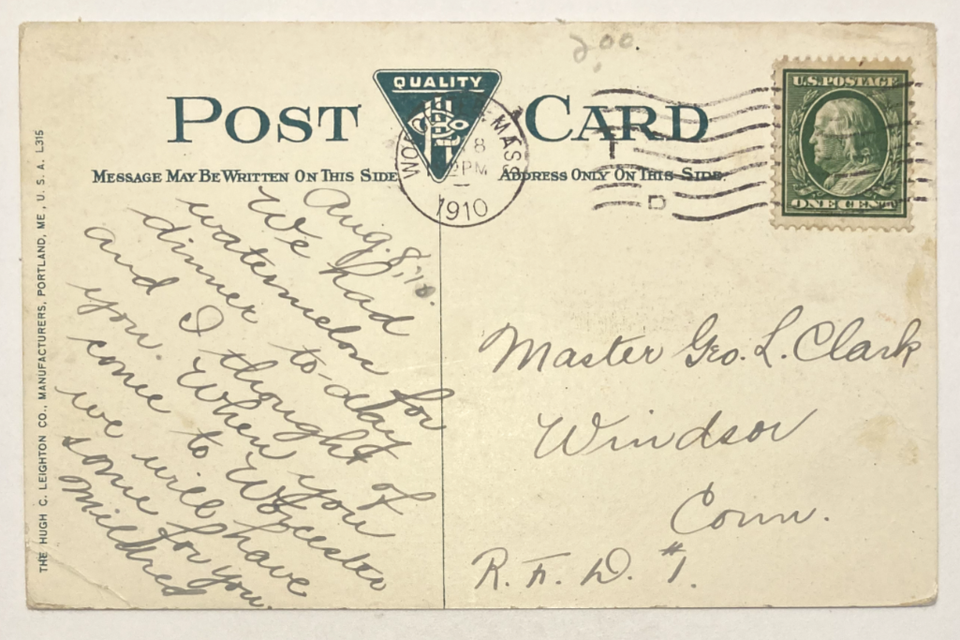 2.00.
QUALITY
POST CARD
MESSAGE MAY BE WRITTEN ON THIS SIDE
ADDRESS ONLY ON THIS SIDE.
MASS
8
2PM
1910
U.S. POSTAGE
ONE CENT
THE HUGH C. LEIGHTON CO., MANUFACTURERS, PORTLAND, ME., U. S. A. L315
Aug. 8,'10.
We had
watermelon for
dinner to-day
and I thought of
you. When you
come to Worcester
we will have
some for you.
Mildred
Master Geo. L. Clark
Windsor
Conn.
R. F. D. #1.